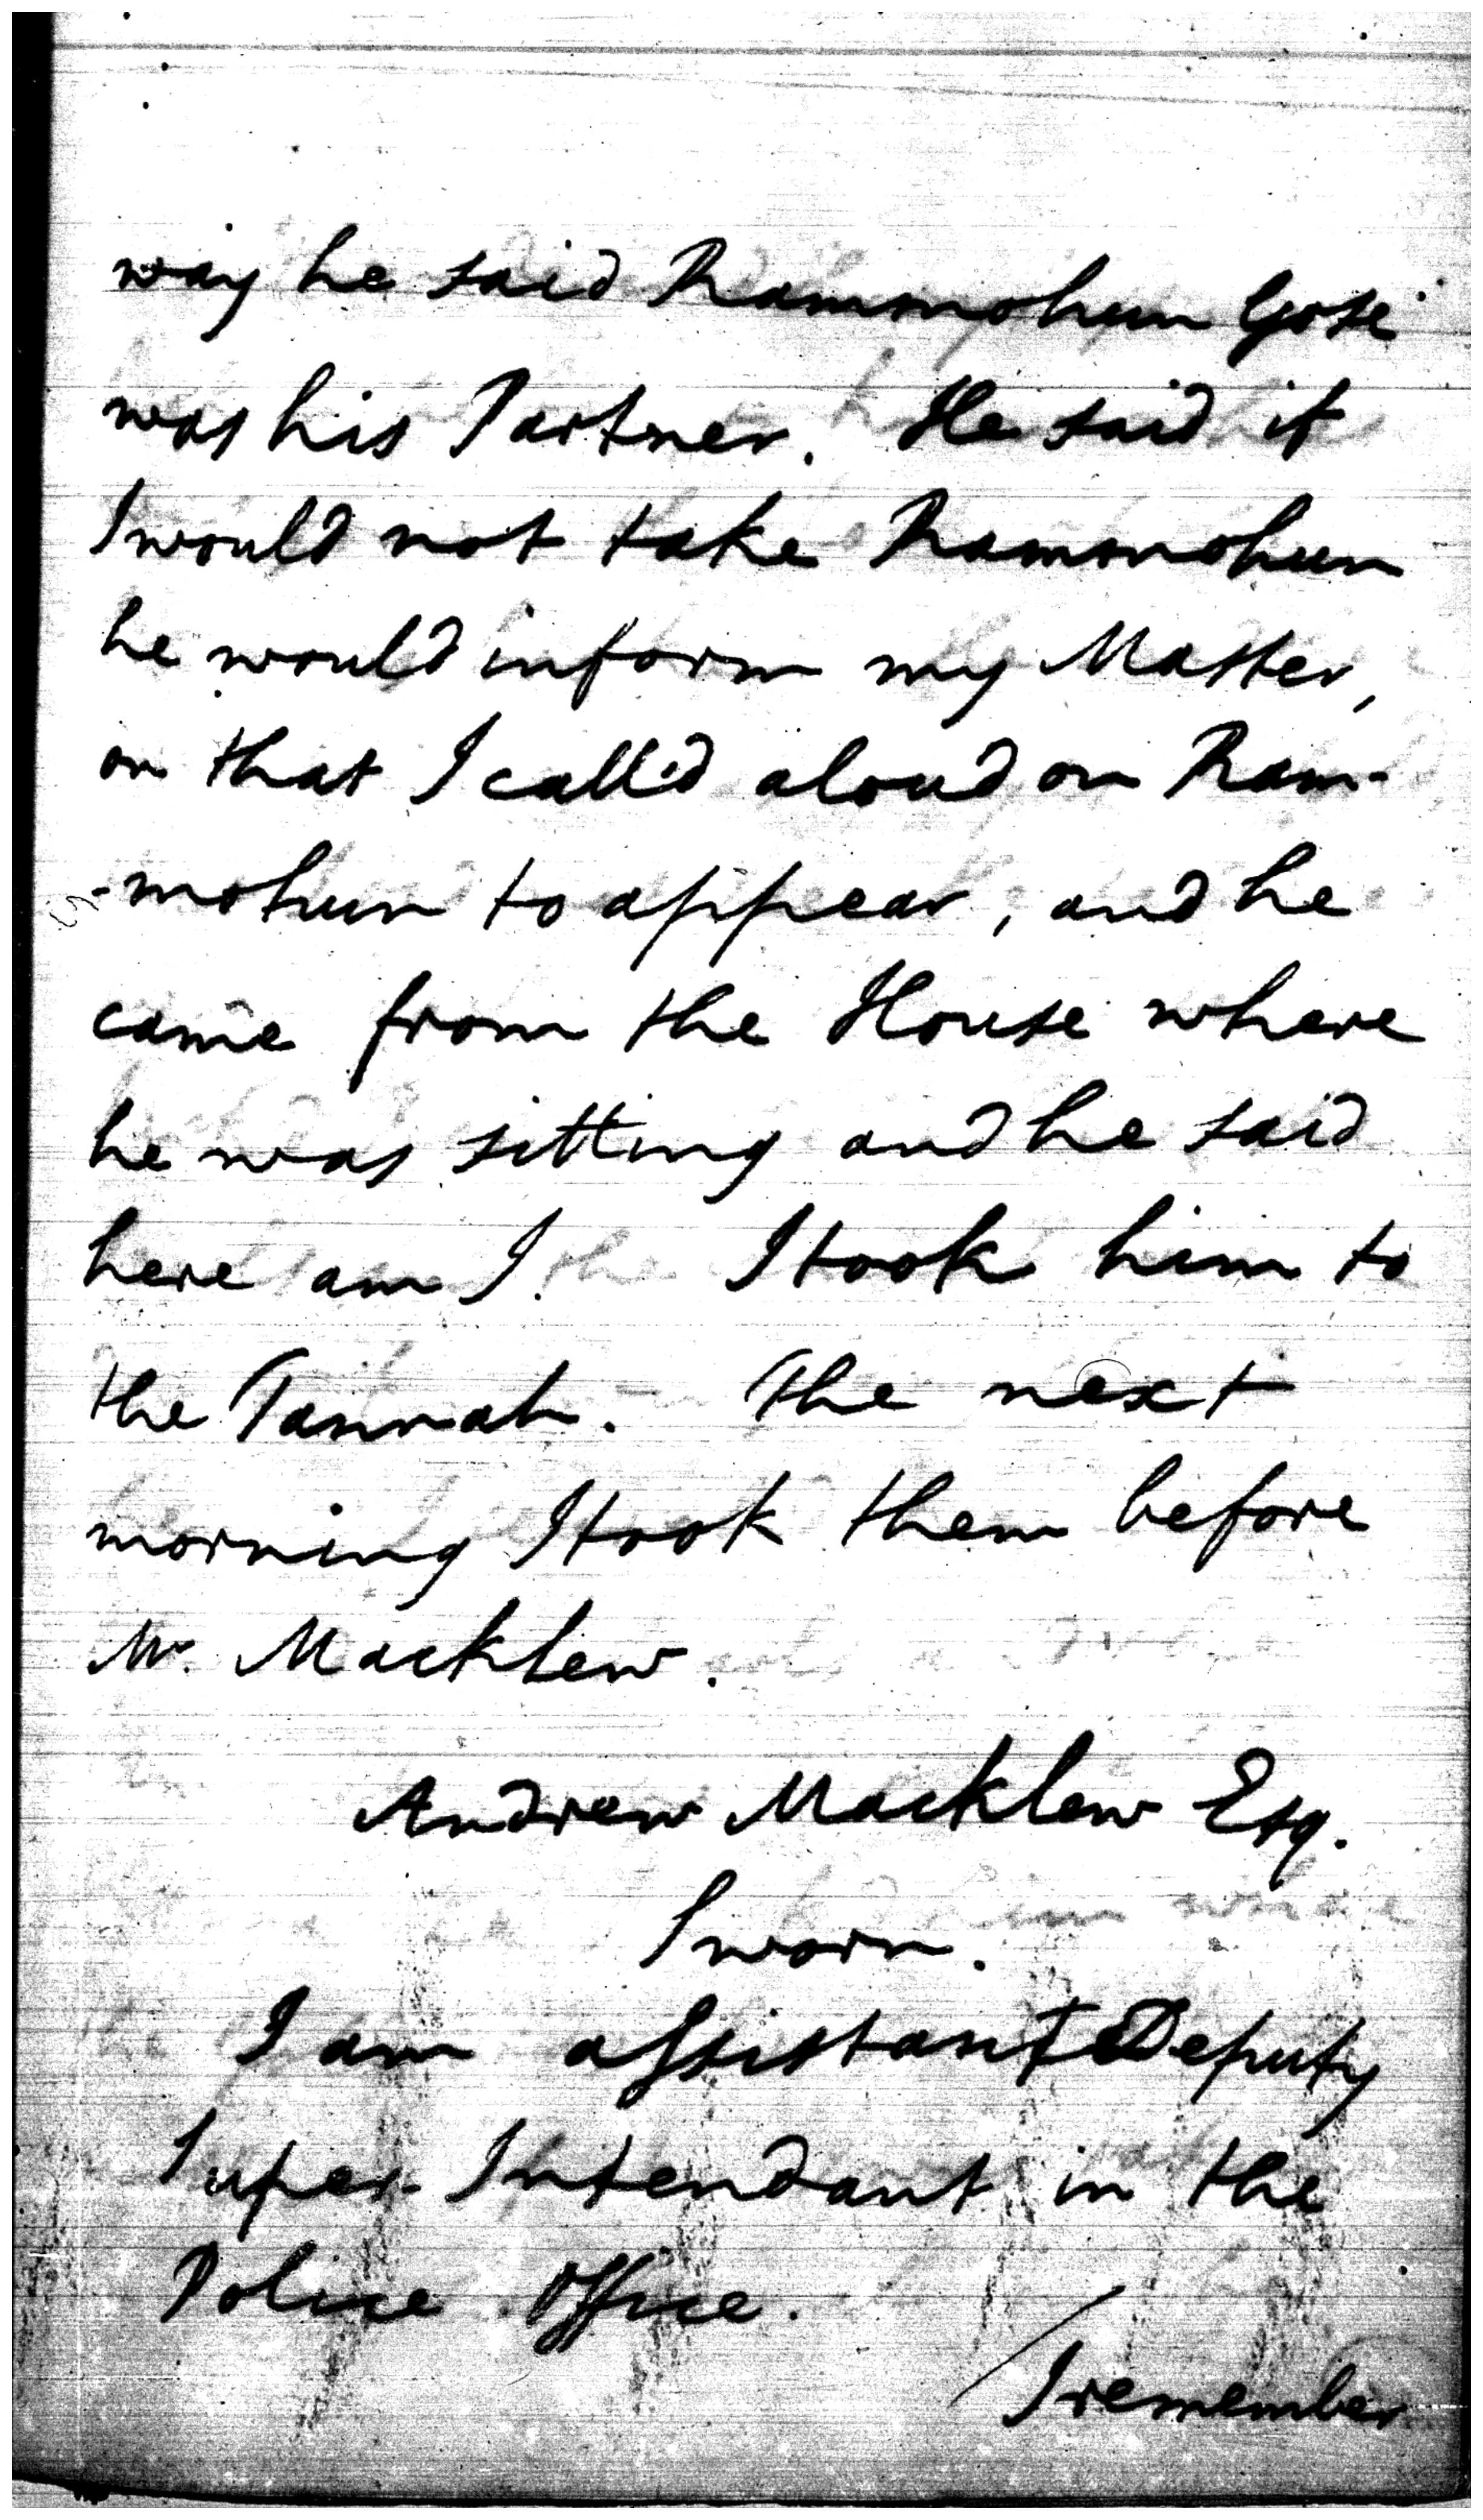 way he said Rammohun Gose
was his Partner. He said if
I would not take Rammohun
he would inform my Master,
on that I call'd aloud on Ram-
-mohun to appear, and he
came from the House where
he was sitting and he said
here am I. I took him to
the Tannah. The next
morning I took them before
Mr. Macklew.
Andrew Macklew Esq.
Sworn.
I am assistant Deputy
Super Intendant in the
Police Office.
I remember